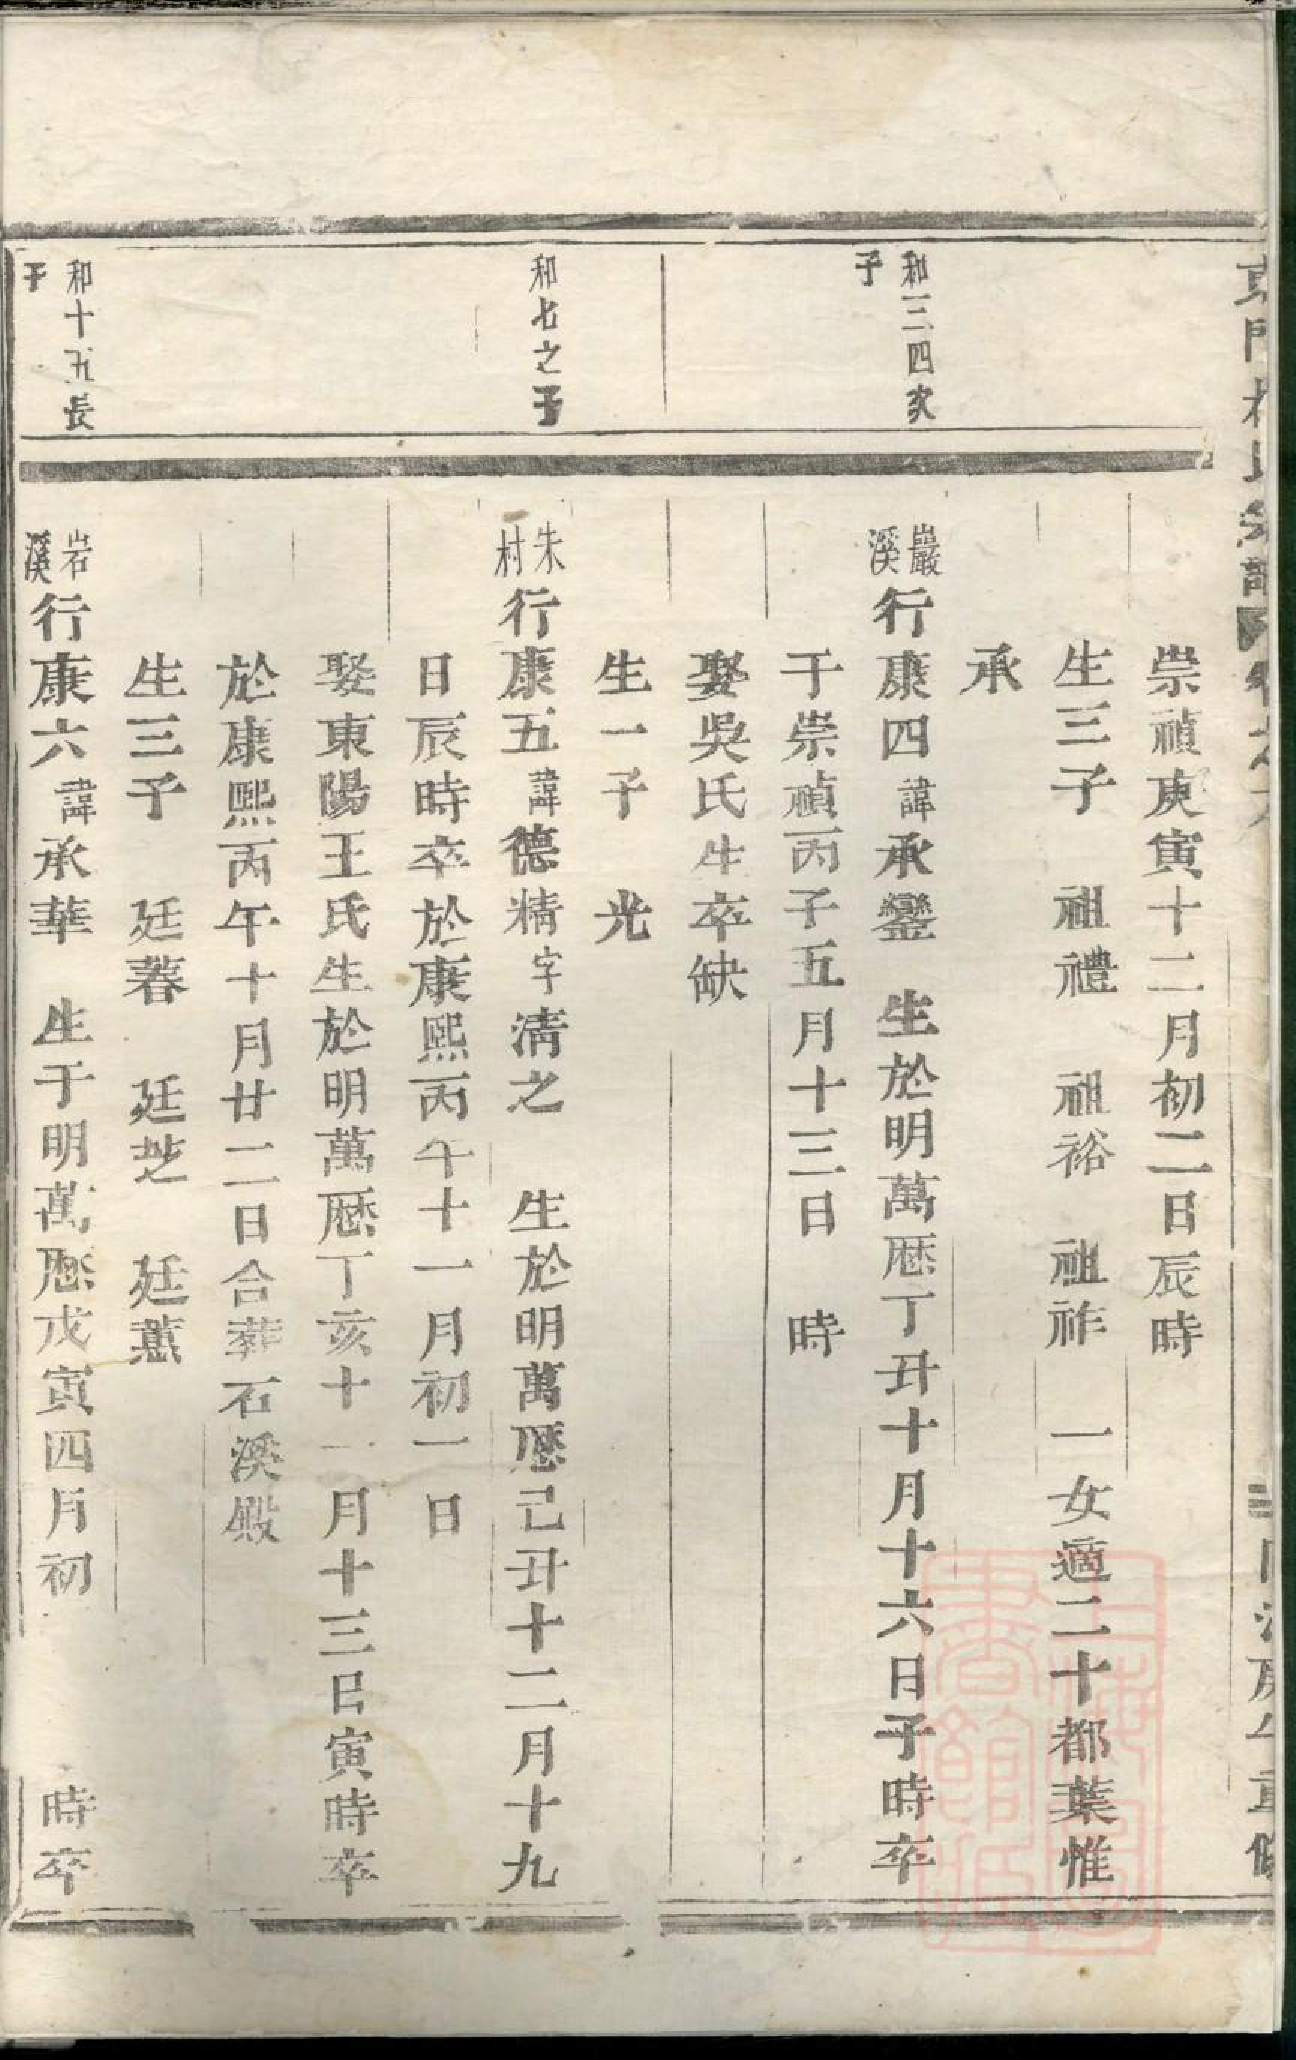 崇禎庚寅十二月初二日辰時
生三子 祖禮 祖裕 祖祚 一女適二十都葉惟
承
和三四次
子
巖溪行康四諱承鑾 生於明萬厯丁丑十月十六日子時卒
于崇禎丙子五月十三日 時
娶吳氏生卒缺
生一子 光
和七之子
朱村行康五諱德精字清之 生於明萬厯己丑十二月十九
日辰時卒於康熙丙午十一月初一日
娶東陽王氏生於明萬厯丁亥十一月十三日寅時卒
於康熙丙午十月廿二日合葬石溪殿
生三子 廷暮 廷芝 廷蕙
和十五長
子
岩溪行康六諱承華 生于明萬厯戊寅四月初 時卒